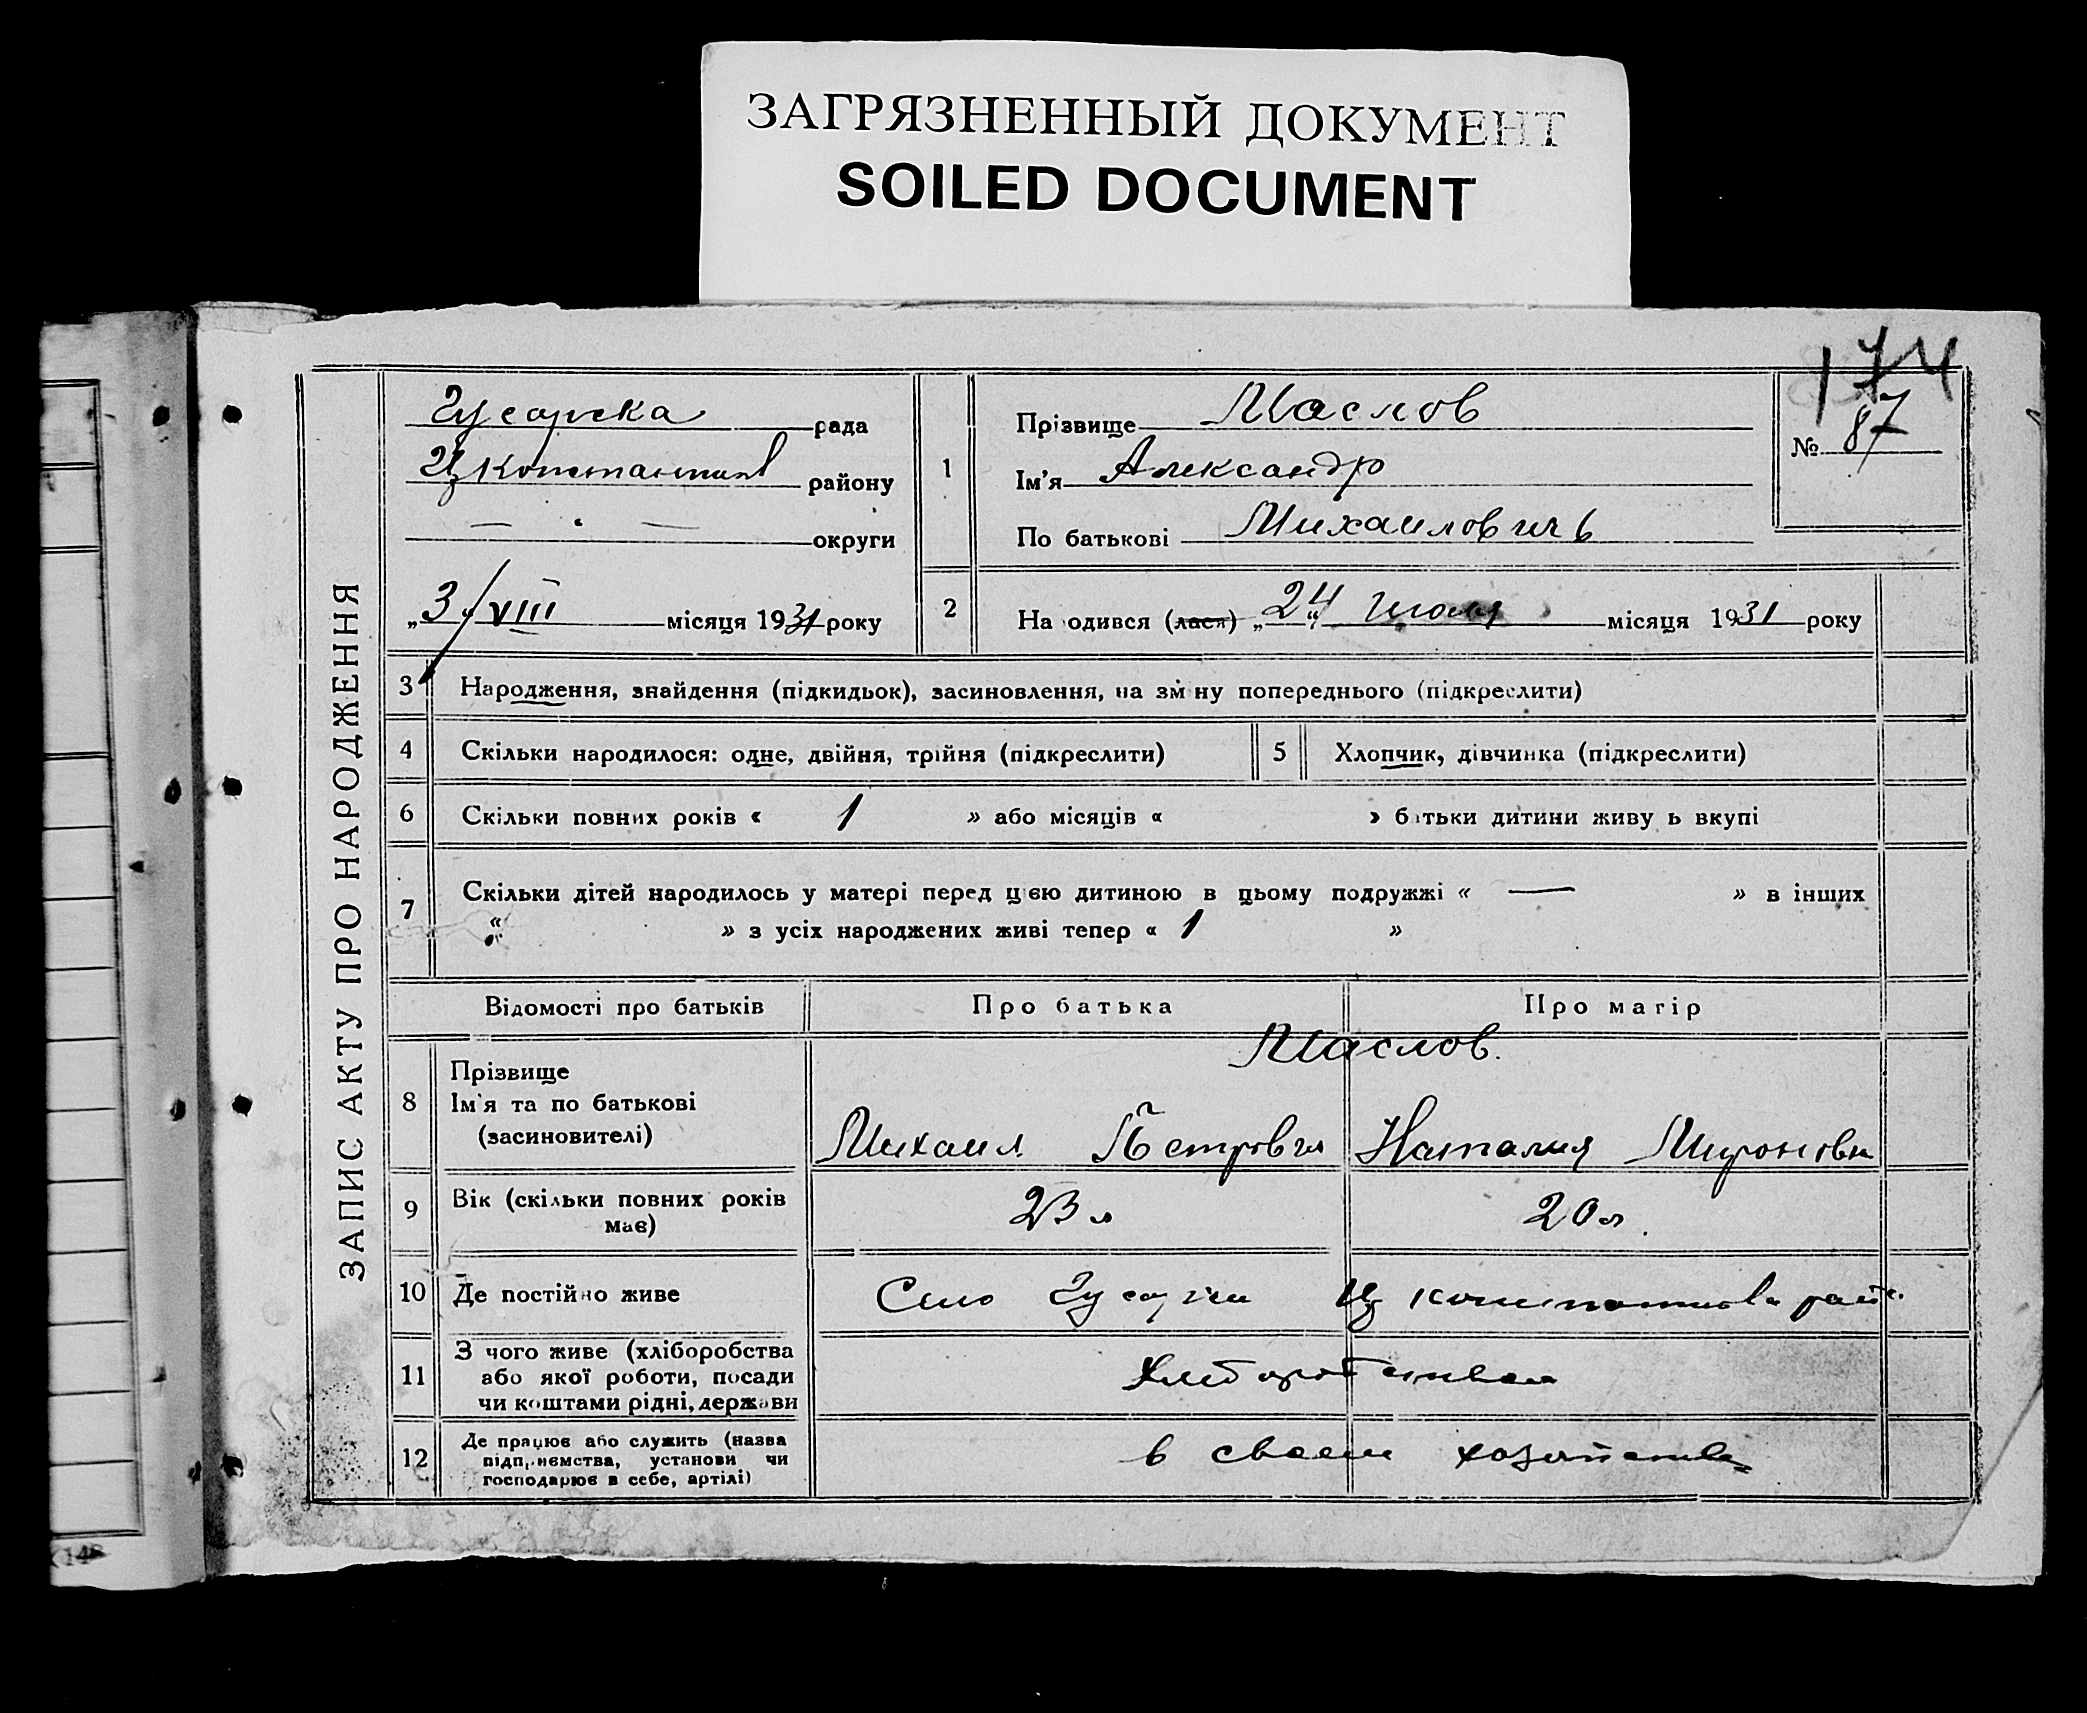 ЗАГРЯЗНЕННЫЙ ДОКУМЕНТ
SOILED DOCUMENT
174
ЗАПИС АКТУ ПРО НАРОДЖЕННЯ
Гусарска рада
району
— · — округи
„3/VIII місяця 1931 року
1
Прізвище Маслов
Ім'я Александр
По батькові Михаилович
№ 87
2 На одився (лася) „24“ Июля місяця 1931 року
3 Народження, знайдення (підкидьок), засиновлення, на зміну попереднього (підкреслити)
4 Скільки народилося: одне, двійня, трійня (підкреслити) 5 Хлопчик, дівчинка (підкреслити)
6 Скільки повних років « 1 » або місяців « » батьки дитини живу ь вкупі
7 Скільки дітей народилось у матері перед цією дитиною в цьому подружжі « — » в інших
« » з усіх народжених живі тепер « 1 »
Відомості про батьків Про батька Про матір
Маслов
8 Прізвище
Ім'я та по батькові
(засиновителі)
Михаил Петрович Наталия Мироновна
9 Вік (скільки повних років
має)
23 л 20 л.
10 Де постійно живе
Село
11 З чого живе (хліборобства
або якої роботи, посади
чи коштами рідні, держави
12 Де працює або служить (назва
підприємства, установи чи
господарює в себе, артілі)
в своем хозяйстве
148